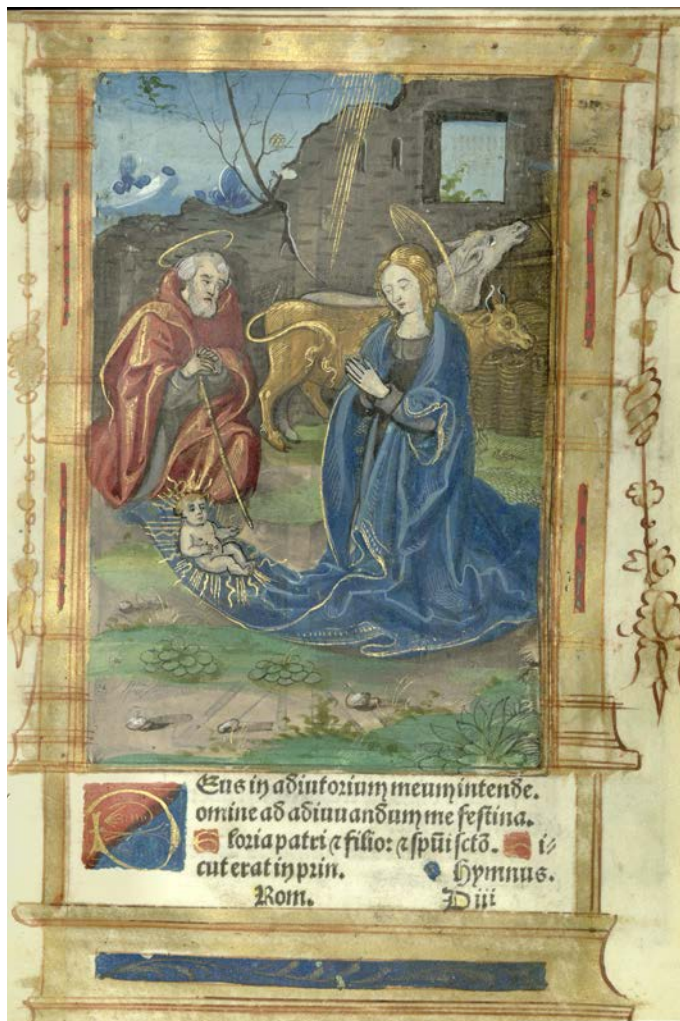 DEus in adiutorium meum intende.
omine ad adiuuandum me festina.
Gloria patri ⁊ filio: ⁊ spũi sctõ. Si⸗
cut erat in prin. Hymnus.
Rom. D iii